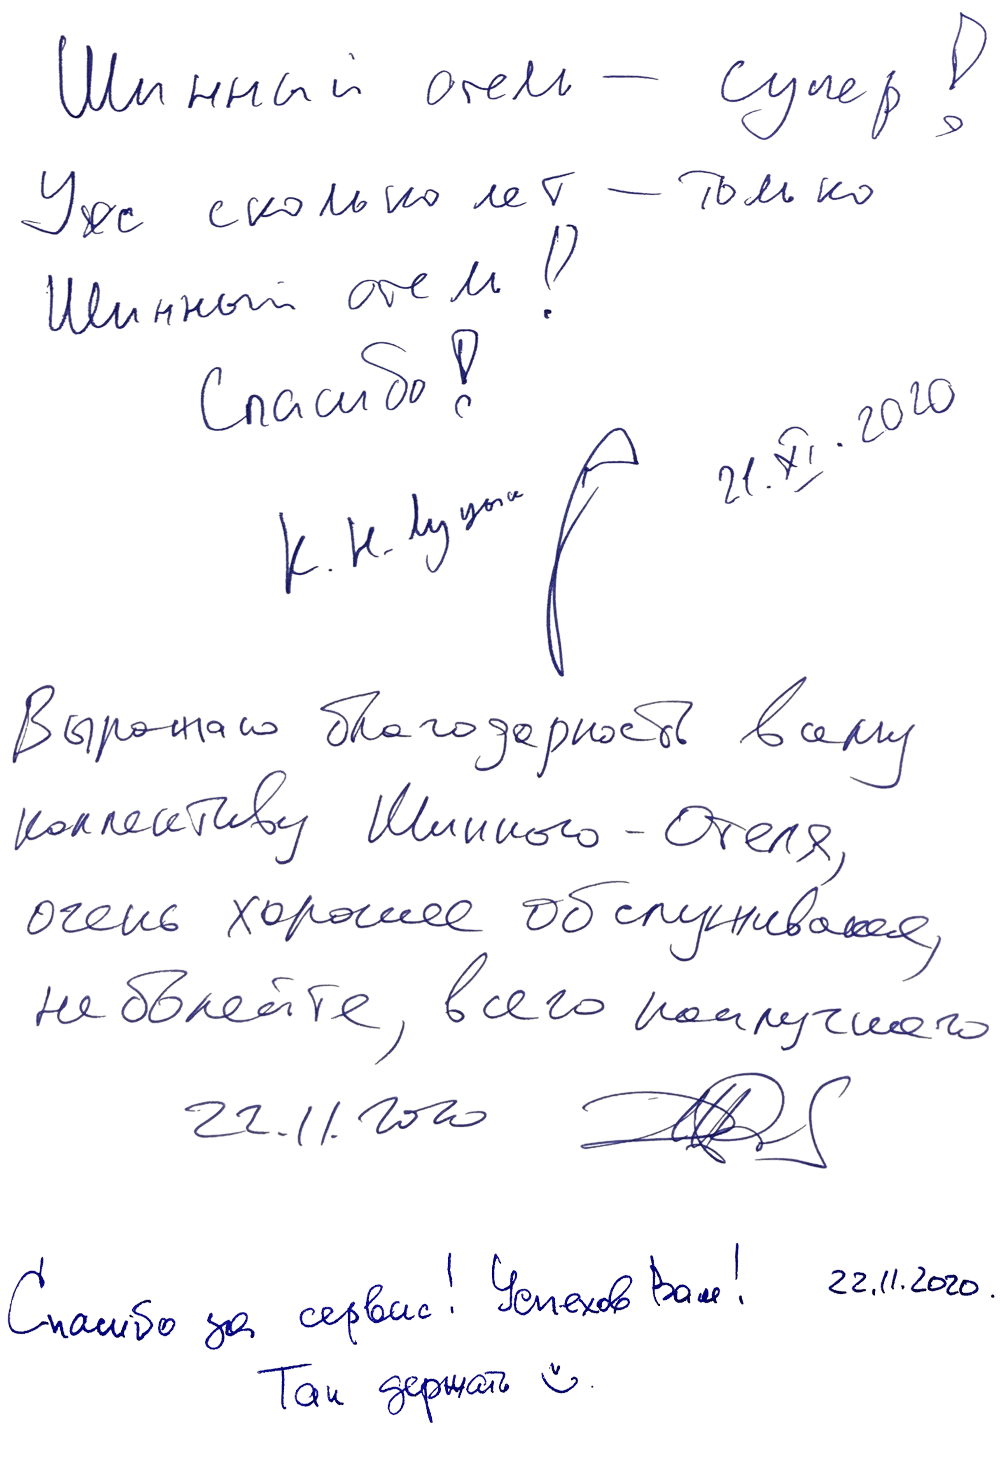 Шинный отель — супер!
Уже сколько лет — только
Шинный отель!
Спасибо!
21.XI.2020
К. Н.
Выражаю благодарность всему
коллективу Шинного-Отеля,
очень хорошее обслуживание,
не болейте, всего наилучшего
22.11.2020
Спасибо за сервис! Успехов Вам! 22.11.2020.
Так держать